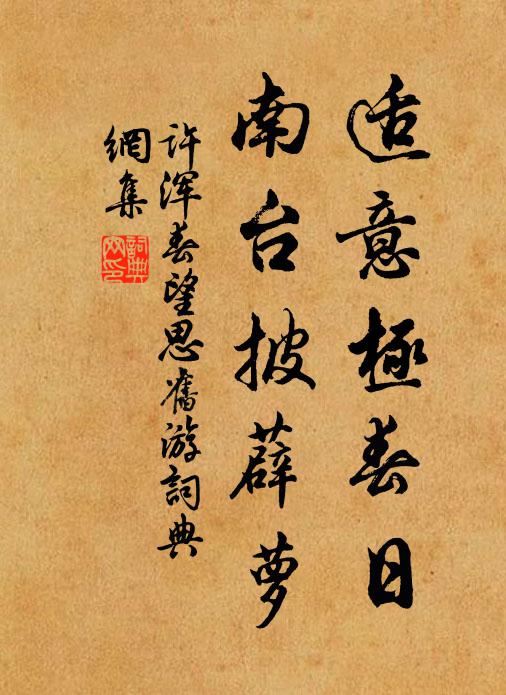 适意極春日
南台披薜萝
许渾春望思舊游詞典
網集
詞典網印